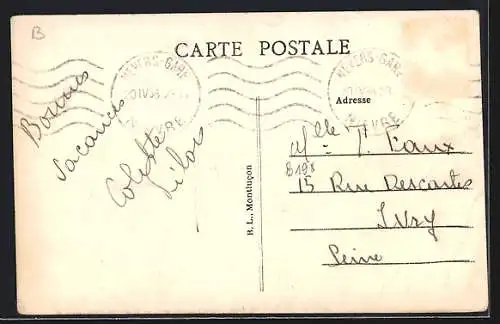 B
CARTE POSTALE
NEVERS-GARE
NIEVRE
NEVERS-GARE
NIEVRE
Adresse
Bonnes
vacances
Colette
Mlle
Faux
8198
15 Rue Descartes
Ivry
Seine
B. L., Montluçon